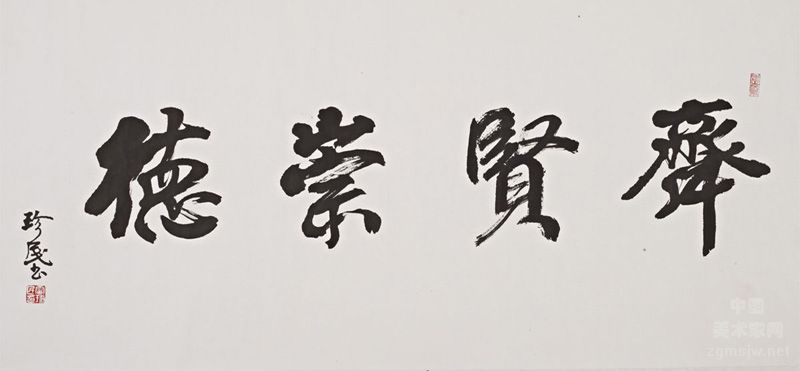 齊賢崇德
珍民书
中国
美术家网
zgmsjw.net